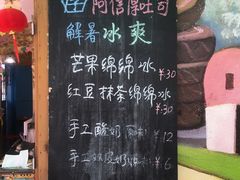 阿信厚吐司
解暑冰爽
芒果绵绵冰 ¥30
红豆抹茶绵绵冰 ¥30
手工酸奶 ¥12
手工双皮奶 ¥6